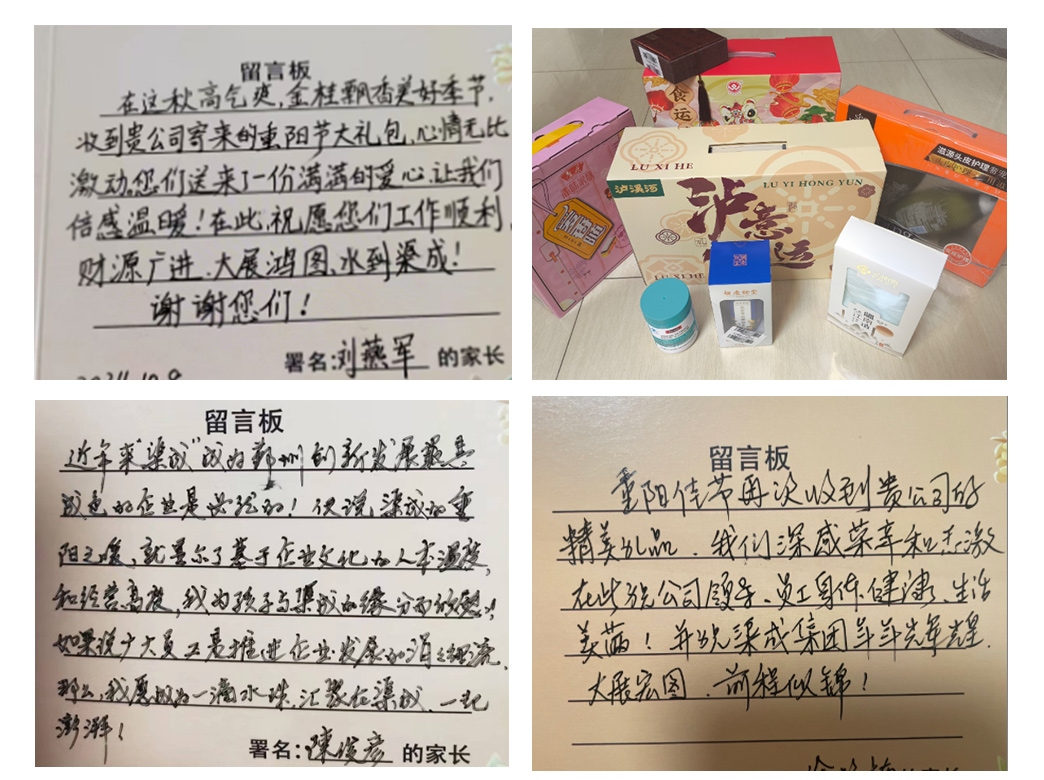 留言板
在这秋高气爽，金桂飘香美好季节，
收到贵公司寄来的重阳节大礼包，心情无比
激动，您们送来了一份满满的爱心，让我们
倍感温暖！在此，祝愿您们工作顺利，
财源广进、大展鸿图、水到渠成！
谢谢您们！
署名：刘燕军 的家长
食运
LU XI HE
泸溪河
LU YI HONG YUN
泸意
运
LU XI HE
滋源头皮护理
留言板
近年来“渠成”成为郑州创新发展最具
成色的企业是必然的！但说，渠成的重
阳之暖，就显示了基于企业文化的人本温度，
和经营高度，我为孩子与渠成的缘分而欣慰！
如果说广大员工是推进企业发展的涓涓细流，
那么，我愿成为一滴水珠，汇聚在渠成，一起
澎湃！
署名：陈俊彦 的家长
留言板
重阳佳节再次收到贵公司的
精美礼品，我们深感荣幸和感激
在此祝公司领导、员工身体健康、生活
美满！并祝渠成集团年年辉煌，
大展宏图，前程似锦！